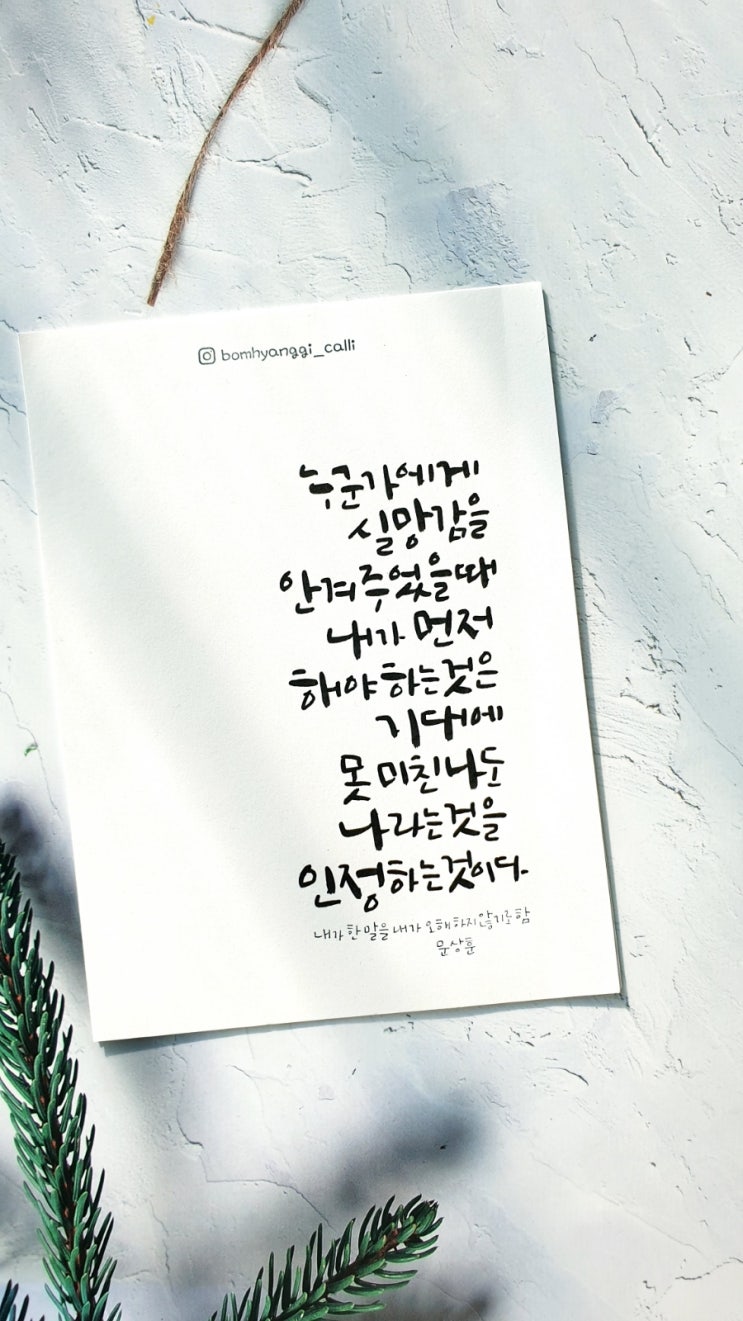 bomhyanggi_calli
누군가에게
실망감을
안겨주었을때
내가 먼저
해야하는것은
기대에
못 미친 나도
나라는것을
인정하는것이다.
내가 한 말을 내가 오해하지 않기로 함
문상훈